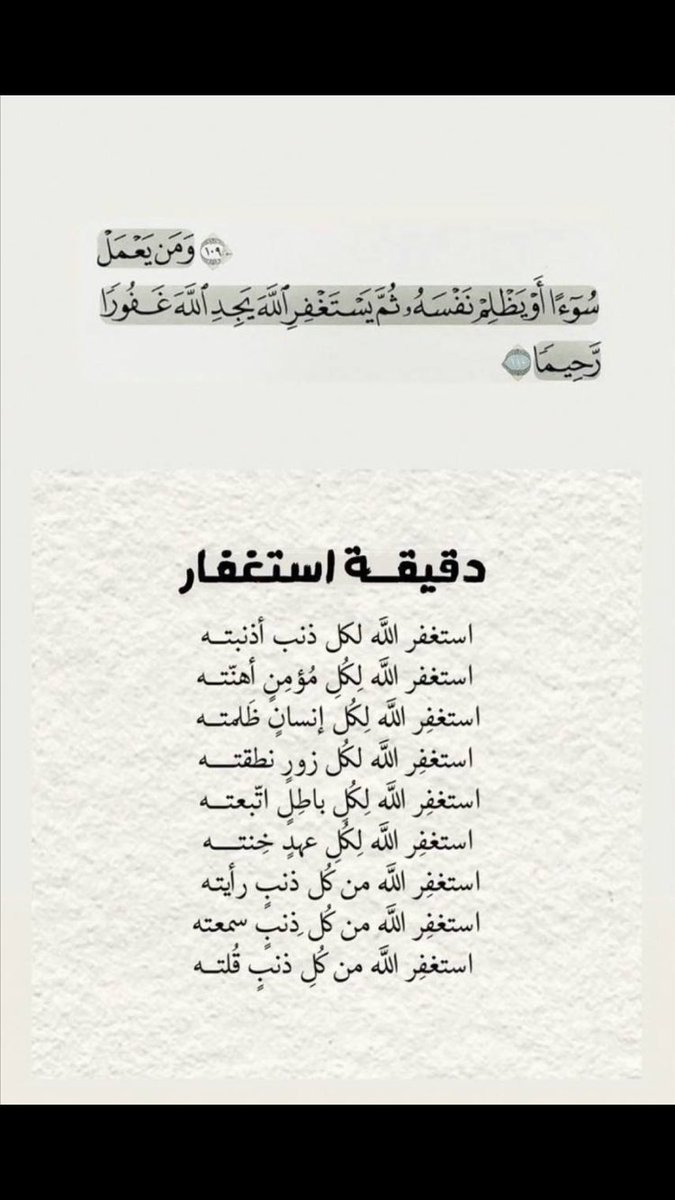 ﴿١٠٩﴾ وَمَن يَعْمَلْ
سُوٓءًا أَوْ يَظْلِمْ نَفْسَهُۥ ثُمَّ يَسْتَغْفِرِ ٱللَّهَ يَجِدِ ٱللَّهَ غَفُورًا
رَّحِيمًا ﴿١١٠﴾
دقيقــة استغفار
استغفر اللَّه لكل ذنب أذنبتــه
استغفر اللَّه لِكُلِ مُؤمِنٍ أهنّتــه
استغفِر اللَّه لِكُل إنسانٍ ظَلمتــه
استغفِر اللَّه لكُل زورٍ نطقتــه
استغفِر اللَّه لِكُلِ باطِلٍ اتّبعتــه
استغفِر اللَّه لِكُلِ عهدٍ خِنتــه
استغفِر اللَّه من كُل ذنبٍ رأيته
استغفِر اللَّه من كُل ِذنبٍ سمعته
استغفِر اللَّه من كُلِ ذنبٍ قُلتــه